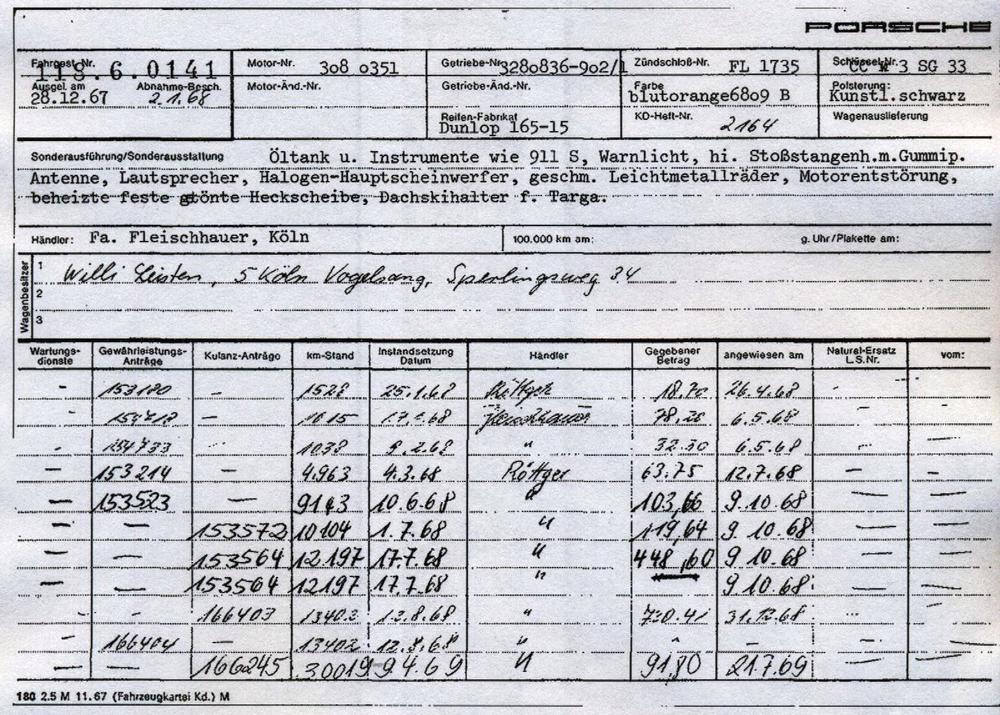 PORSCHE
Fahrgest.Nr. 118.6.0141 Motor-Nr. 308 0351 Getriebe-Nr. 3280836-902/1 Zündschloß-Nr. FL 1735 Schlüssel-Nr. 3 SG 33
Ausgel. am 28.12.67 Abnahme-Besch. 2.1.68 Motor-Änd.-Nr. Getriebe-Änd.-Nr. Farbe blutorange6809 B Polsterung: Kunstl.schwarz
Reifen-Fabrikat Dunlop 165-15 KD-Heft-Nr. 2164 Wagenauslieferung
Sonderausführung/Sonderausstattung Öltank u. Instrumente wie 911 S, Warnlicht, hi. Stoßstangenh.m.Gummip.
Antenne, Lautsprecher, Halogen-Hauptscheinwerfer, geschm. Leichtmetallräder, Motorentstörung,
beheizte feste gtönte Heckscheibe, Dachskihalter f. Targa.
Händler: Fa. Fleischhauer, Köln 100.000 km am: g. Uhr/Plakette am:
Wagenbesitzer
1 Willi Leisten, 5 Köln Vogelsang, Sperlingsweg 34
2
3
Wartungs-dienste Gewährleistungs-Anträge Kulanz-Anträge km-Stand Instandsetzung Datum Händler Gegebener Betrag angewiesen am Natural-Ersatz L.S.Nr. vom:
- 153180 - 1528 25.1.68 Röttger 18.70 26.4.68 - -
- - 1015 Fleischhauer 78.20 6.5.68 - -
- 154733 - 1038 9.2.68 " 32.30 6.5.68 - -
- 153214 - 4.963 4.3.68 Röttger 63.75 12.7.68 - -
- 153523 - 9143 10.6.68 " 103,66 9.10.68 - -
- - 153572 10104 1.7.68 " 119,64 9.10.68 - -
- - 153564 12.197 17.7.68 " 448,60 9.10.68 - -
- - 153564 12197 17.7.68 " 9.10.68 - -
- - 166403 13402 13.8.68 " 730.41 31.12.68 - -
- 166404 - 13402 12.8.68 " - - - -
- - 166245 30019 9.4.69 " 91,80 21.7.69 - -
180 2.5 M 11.67 (Fahrzeugkartei Kd.) M